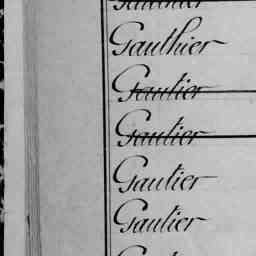 Gauthier
Gauthier
Gautier
Gautier
Gautier
Gautier